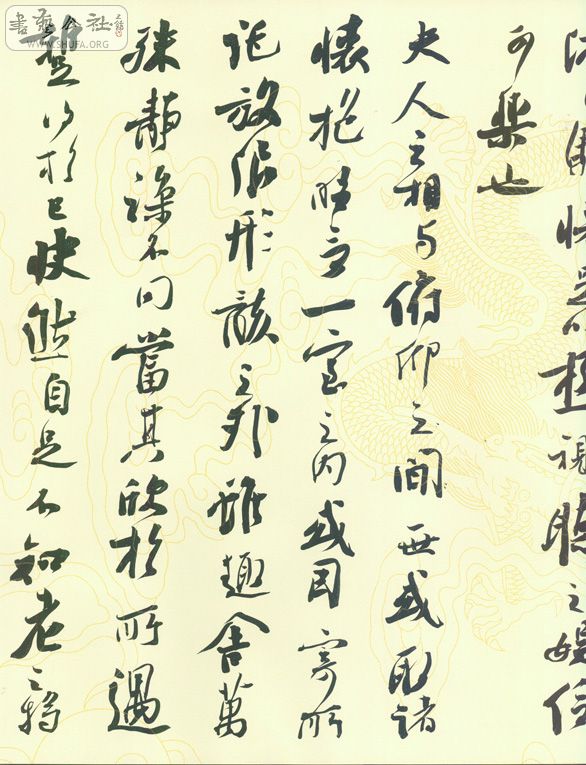 足以極視聽之娛信
可樂也
夫人之相與俯仰之間世或取諸
懷抱晤言一室之內或因寄所
託放浪形骸之外雖趣舍萬
殊靜躁不同當其欣於所遇
暫得於己快然自足不知老之將
書藝公社
WWW.SHUFA.ORG